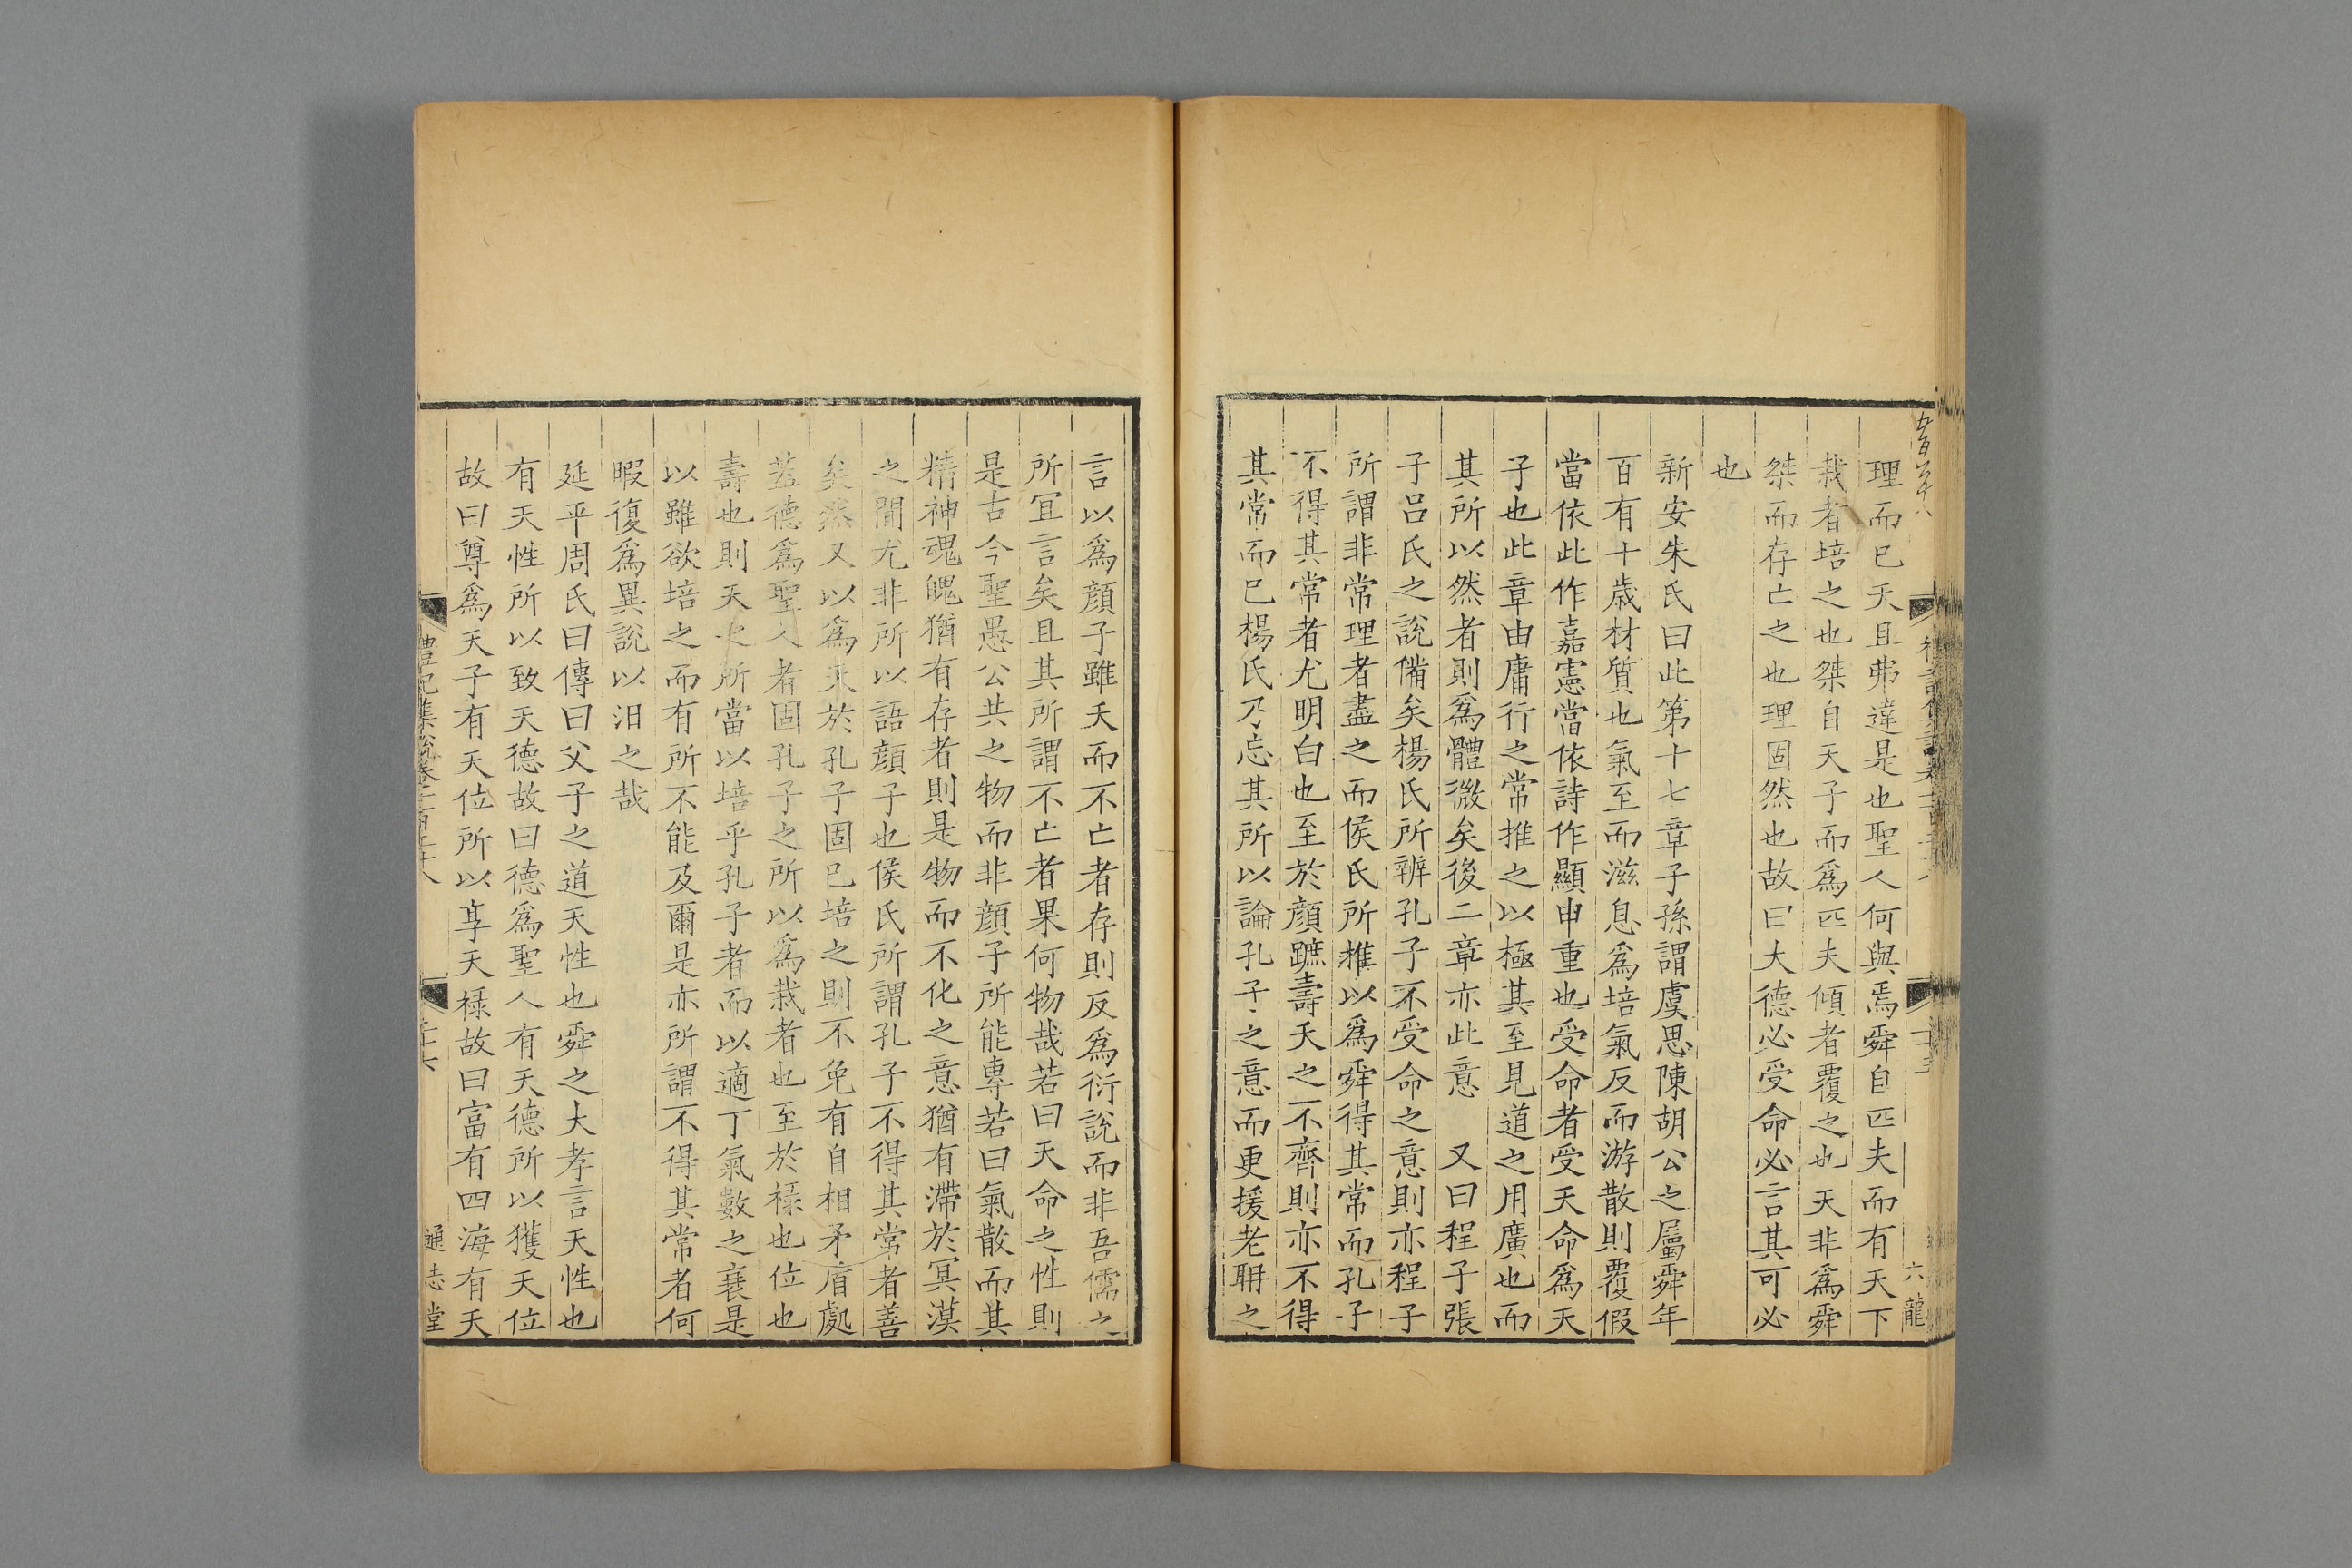 理而已天且弗違是也聖人何與焉舜自匹夫而有天下
栽者培之也桀自天子而爲匹夫傾者覆之也天非爲舜
桀而存亡之也理固然也故曰大德必受命必言其可必
也
新安朱氏曰此第十七章子孫謂虞思陳胡公之屬舜年
百有十歲材質也氣至而滋息爲培氣反而游散則覆假
當依此作嘉憲當依詩作顯申重也受命者受天命爲天
子也此章由庸行之常推之以極其至見道之用廣也而
其所以然者則爲體微矣後二章亦此意　又曰程子張
子呂氏之說備矣楊氏所辨孔子不受命之意則亦程子
所謂非常理者盡之而侯氏所推以爲舜得其常而孔子
不得其常者尤明白也至於顏蹠壽夭之不齊則亦不得
其常而已楊氏乃忘其所以論孔子之意而更援老聃之
六　龍
言以爲顏子雖夭而不亡者存則反爲衍說而非吾儒之
所宜言矣且其所謂不亡者果何物哉若曰天命之性則
是古今聖愚公共之物而非顏子所能專若曰氣散而其
精神魂魄猶有存者則是物而不化之意猶有滯於冥漠
之閒尤非所以語顏子也侯氏所謂孔子不得其常者善
矣然又以爲天於孔子固已培之則不免有自相矛盾處
蓋德爲聖人者固孔子之所以爲栽者也至於祿也位也
壽也則天之所當以培乎孔子者而以適丁氣數之衰是
以雖欲培之而有所不能及爾是亦所謂不得其常者何
暇復爲異說以汨之哉
延平周氏曰傳曰父子之道天性也舜之大孝言天性也
有天性所以致天德故曰德爲聖人有天德所以獲天位
故曰尊爲天子有天位所以享天祿故曰富有四海有天
禮記集說卷一百二十八　二十六　通志堂